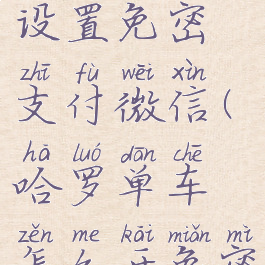 设置免密
zhī fù wēi xìn
支付微信(
hā luó dān chē
哈罗单车
zěn me kāi miǎn mì
怎么开免密